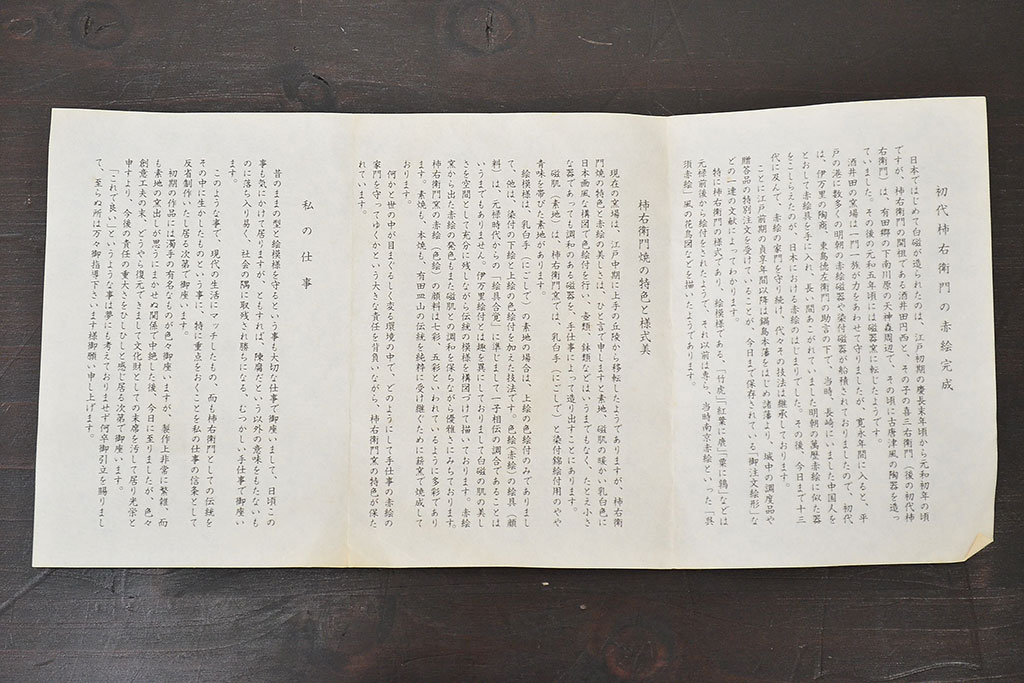 初代柿右衛門の赤絵完成
日本ではじめて白磁が造られたのは、江戸初期の慶長末年頃から元和初年の頃
ですが、柿右衛門の開祖である酒井田円西と、その子の喜三右衛門（後の初代柿
右衛門）は、有田郷の下南川原の天神森周辺で、その頃に古唐津風の陶器を造っ
ていました。その後の元和五年頃には磁器窯に転じたようです。
酒井田の窯場は一門一族が力をあわせて守りましたが、寛永年間に入ると、平
戸の港に数多くの明朝の赤絵磁器や染付磁器が船積されておりましたので、初代
は、伊万里の陶商、東島徳左衛門の助言の下で、当時、長崎にいました中国人を
とおして赤絵具を手に入れ、長い間あこがれていました明朝の萬歴赤絵に似た器
をこしらえたのが、日本における赤絵のはじまりでした。その後、今日まで十三
代に及んで、赤絵の家門を守り続け、代々その技法は継承しております。
ことに江戸前期の貞享年間以降は鍋島本藩をはじめ諸藩より、城中の調度品や
贈答品の特別注文を受けていることが、今日まで保存されている「御注文絵形」な
どの一連の文献によってわかります。
特に柿右衛門の様式であり、絵模様である、「竹虎」「紅葉に鹿」「粟に鶉」などは
元禄前後から絵付をされたようで、それ以前は専ら、当時南京赤絵といった「呉
須赤絵」風の花鳥図などを描いたようであります。
柿右衛門焼の特色と様式美
現在の窯場は、江戸中期に上手の丘陵から移転したようでありますが、柿右衛
門焼の特色と赤絵の美しさは、ひと言で申しますと素地、磁肌の暖かい乳白色に
日本画風な構図で色絵付を行い、壺類、鉢類などはいうまでもなく、たとえ小さ
な器であっても調和のある磁器を、手仕事によって造り出すことにあります。
磁肌（素地）は、柿右衛門窯では、乳白手（にごしで）と染付錦絵付用のやや
青味を帯びた素地があります。
絵模様は、乳白手（にごしで）の素地の場合は、上絵の色絵付のみでありまし
て、他は、染付の下絵と上絵の色絵付を加えた技法です。色絵（赤絵）の絵具（顔
料）は、元禄時代からの「絵具合覚」に準じまして一子相伝の調合であることは
いうまでもありません。伊万里絵付とは趣を異にしておりまして白磁の肌の美し
さを空間として充分に残しながら伝統の模様を構図づけて描いております。赤絵
窯から出た赤絵の発色もまた磁肌との調和を保ちながら優雅さにみちております。
柿右衛門窯の赤絵（色絵）の顔料は七彩、五彩といわれているように多彩であり
ます。素焼も、本焼も、有田皿山の伝統を純粋に受け継ぐために薪窯で焼成して
おります。
何かと世の中が目まぐるしく変る環境の中で、どのようにして手仕事の赤絵の
家門を守ってゆくかという大きな責任を背負いながら、柿右衛門窯の特色が保た
れています。
私の仕事
昔のままの型と絵模様を守るという事も大切な仕事で御座いまして、日頃この
事も気にかけて居りますが、ともすれば、陳腐だという以外の意味をもたないも
のに落ち入り易く、社会の隅に取残され勝ちになる、むつかしい仕事で御座い
ます。
このような事で、現代の生活にマッチしたもの、而も柿右衛門としての伝統を
その中に生かしたものという事に、特に重点をおくことを私の仕事の信条として
反省制作いたし居る次第で御座います。
初期の作品には濁手の有名なものが色々御座いますが、製作上非常に繁雑、而
も素地の窯出しが思うにまかせぬ関係で中絶した後、今日に至りましたが、色々
創意工夫の末、どうやら復元できまして文化財としての末席を汚して居り光栄と
申すより、今後の責任の重大さをひしひしと感じ居る次第で御座います。
「これで良い」というような事は夢にも考えておりませず何卒御引立を賜りまし
て、至らぬ所は万々御指導下さいます様御願い申し上げます。